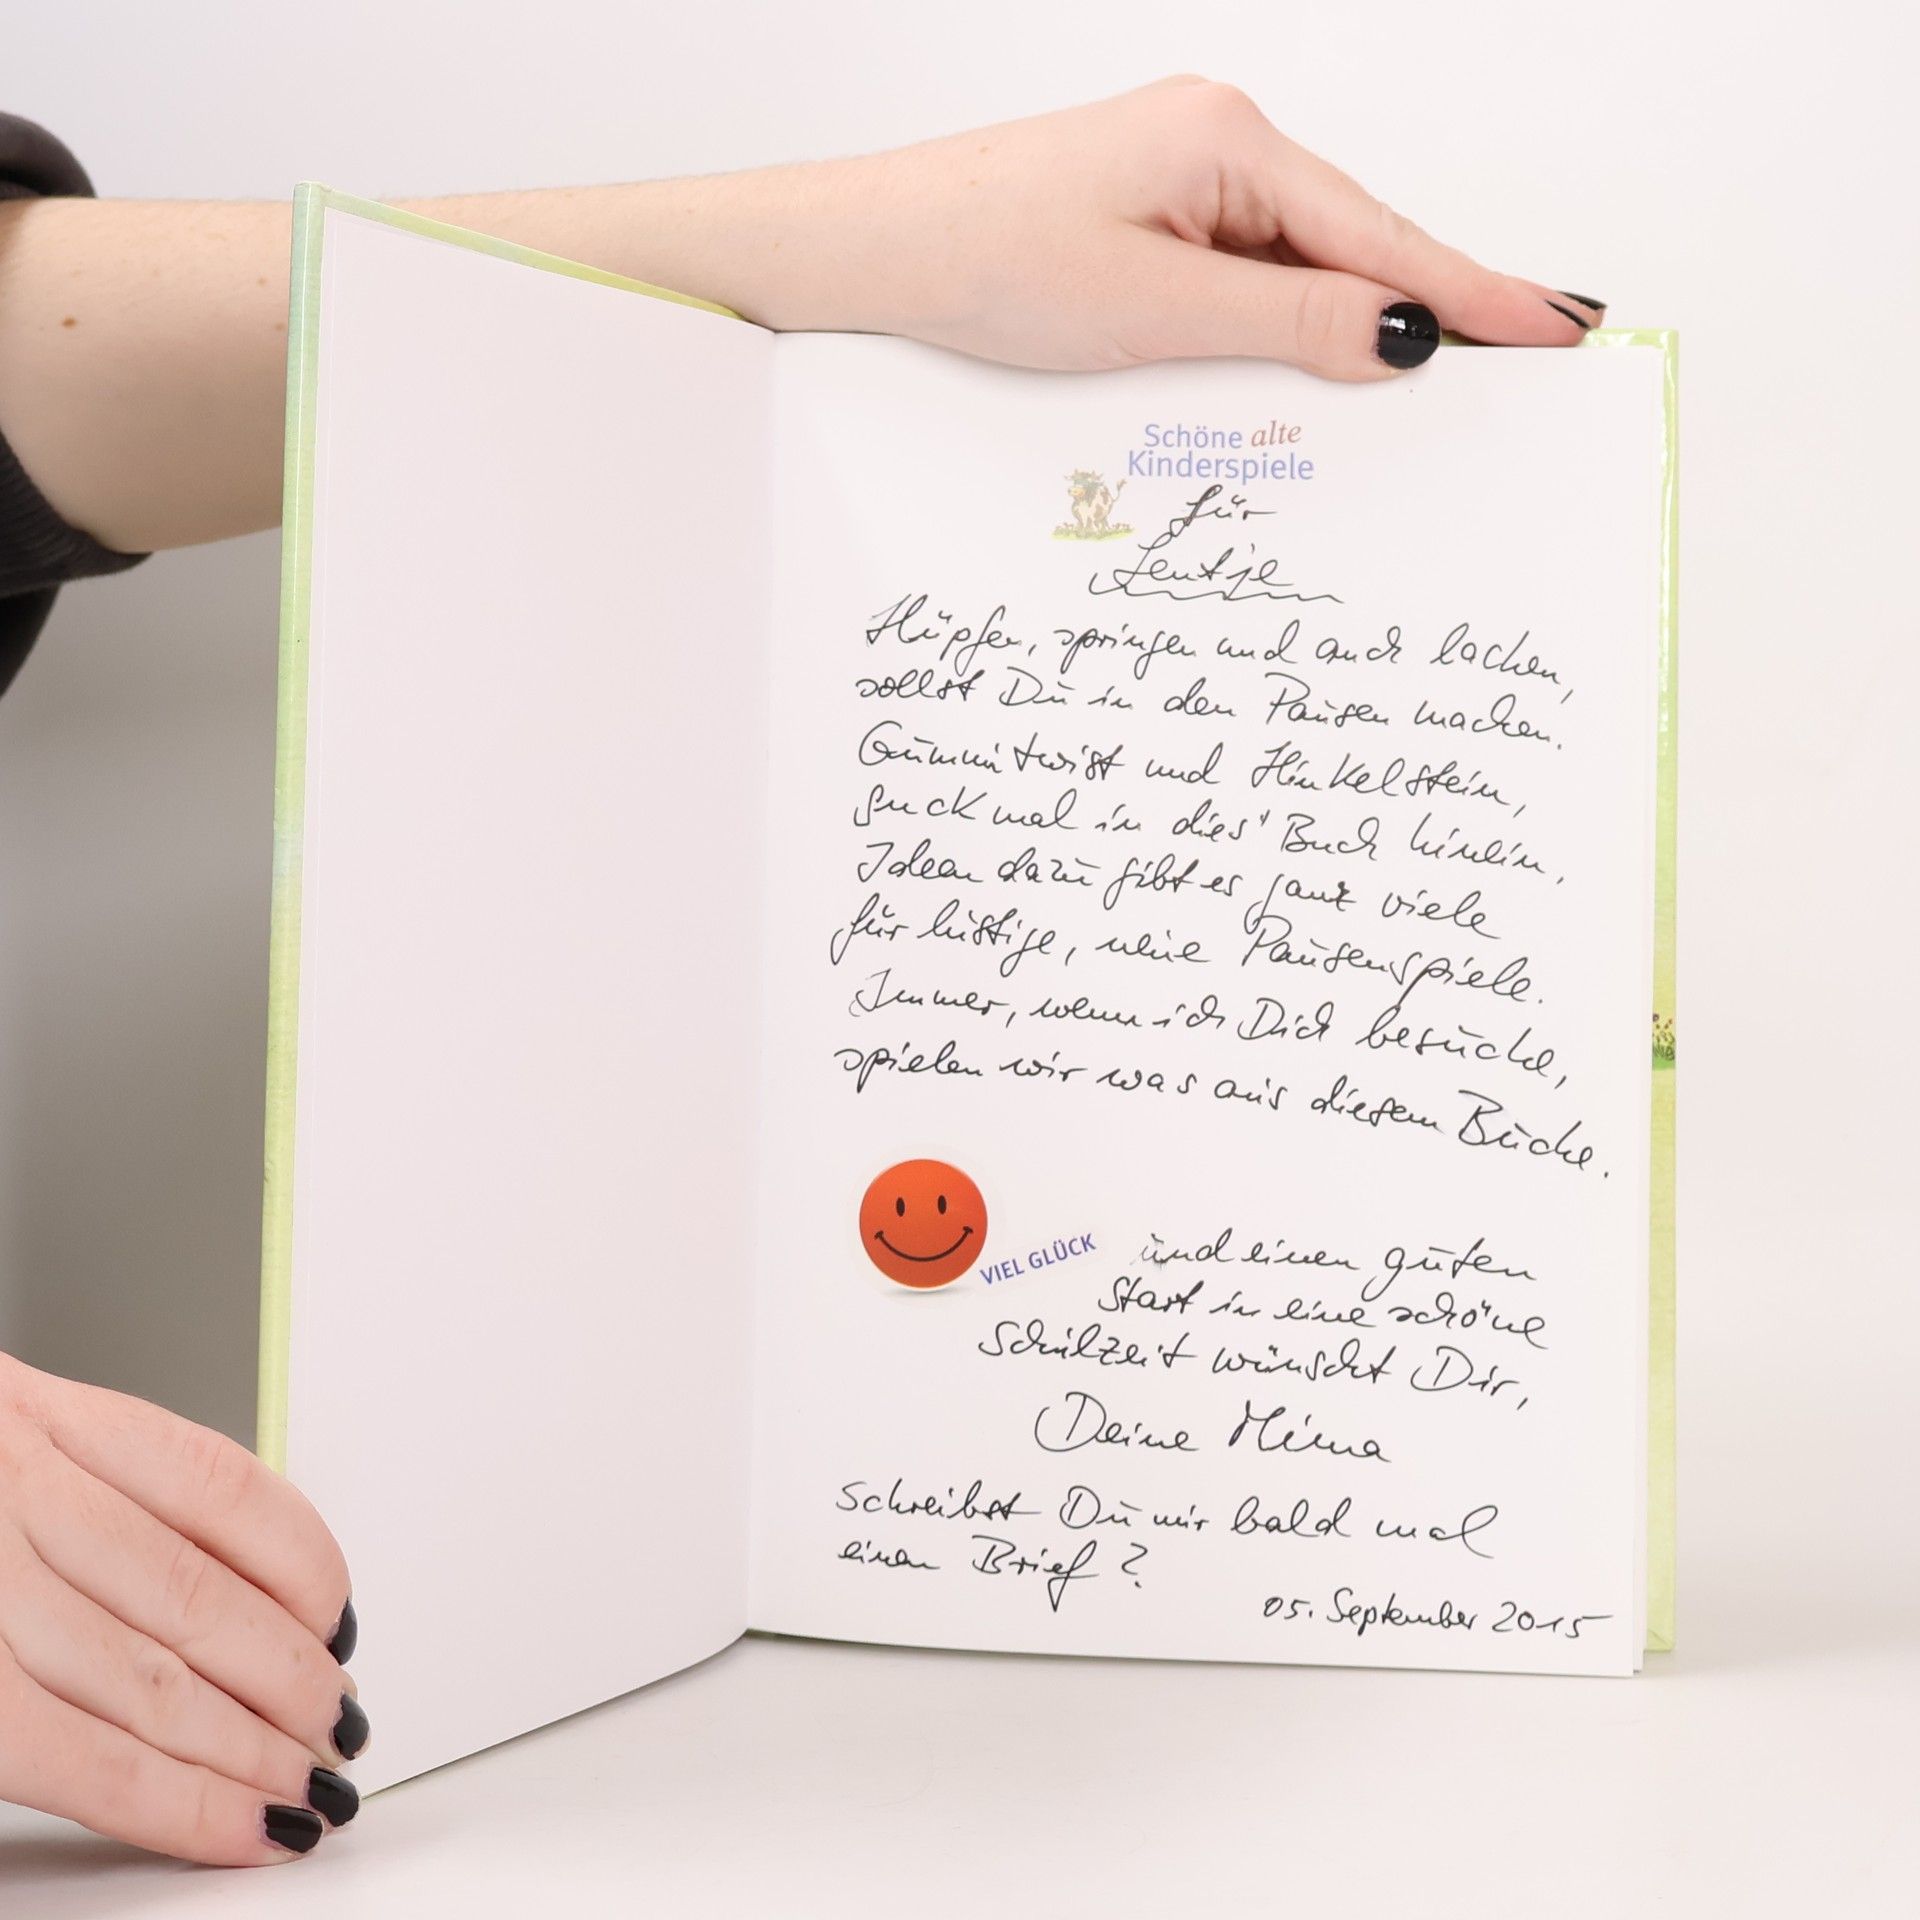 Schöne alte
Kinderspiele
für
Hüpfen, springen und auch lachen,
sollst Du in den Pausen machen.
Gummitwist und Hinkelstein,
guck mal in dies' Buch hinein,
Ideen dazu gibt es ganz viele
für lustige, neue Pausenspiele.
Immer, wenn ich Dich besuche,
spielen wir was aus diesem Buche.
VIEL GLÜCK und einen guten
Start in eine schöne
Schulzeit wünscht Dir,
Deine Mima
Schreibst Du mir bald mal
einen Brief?
05. September 2015